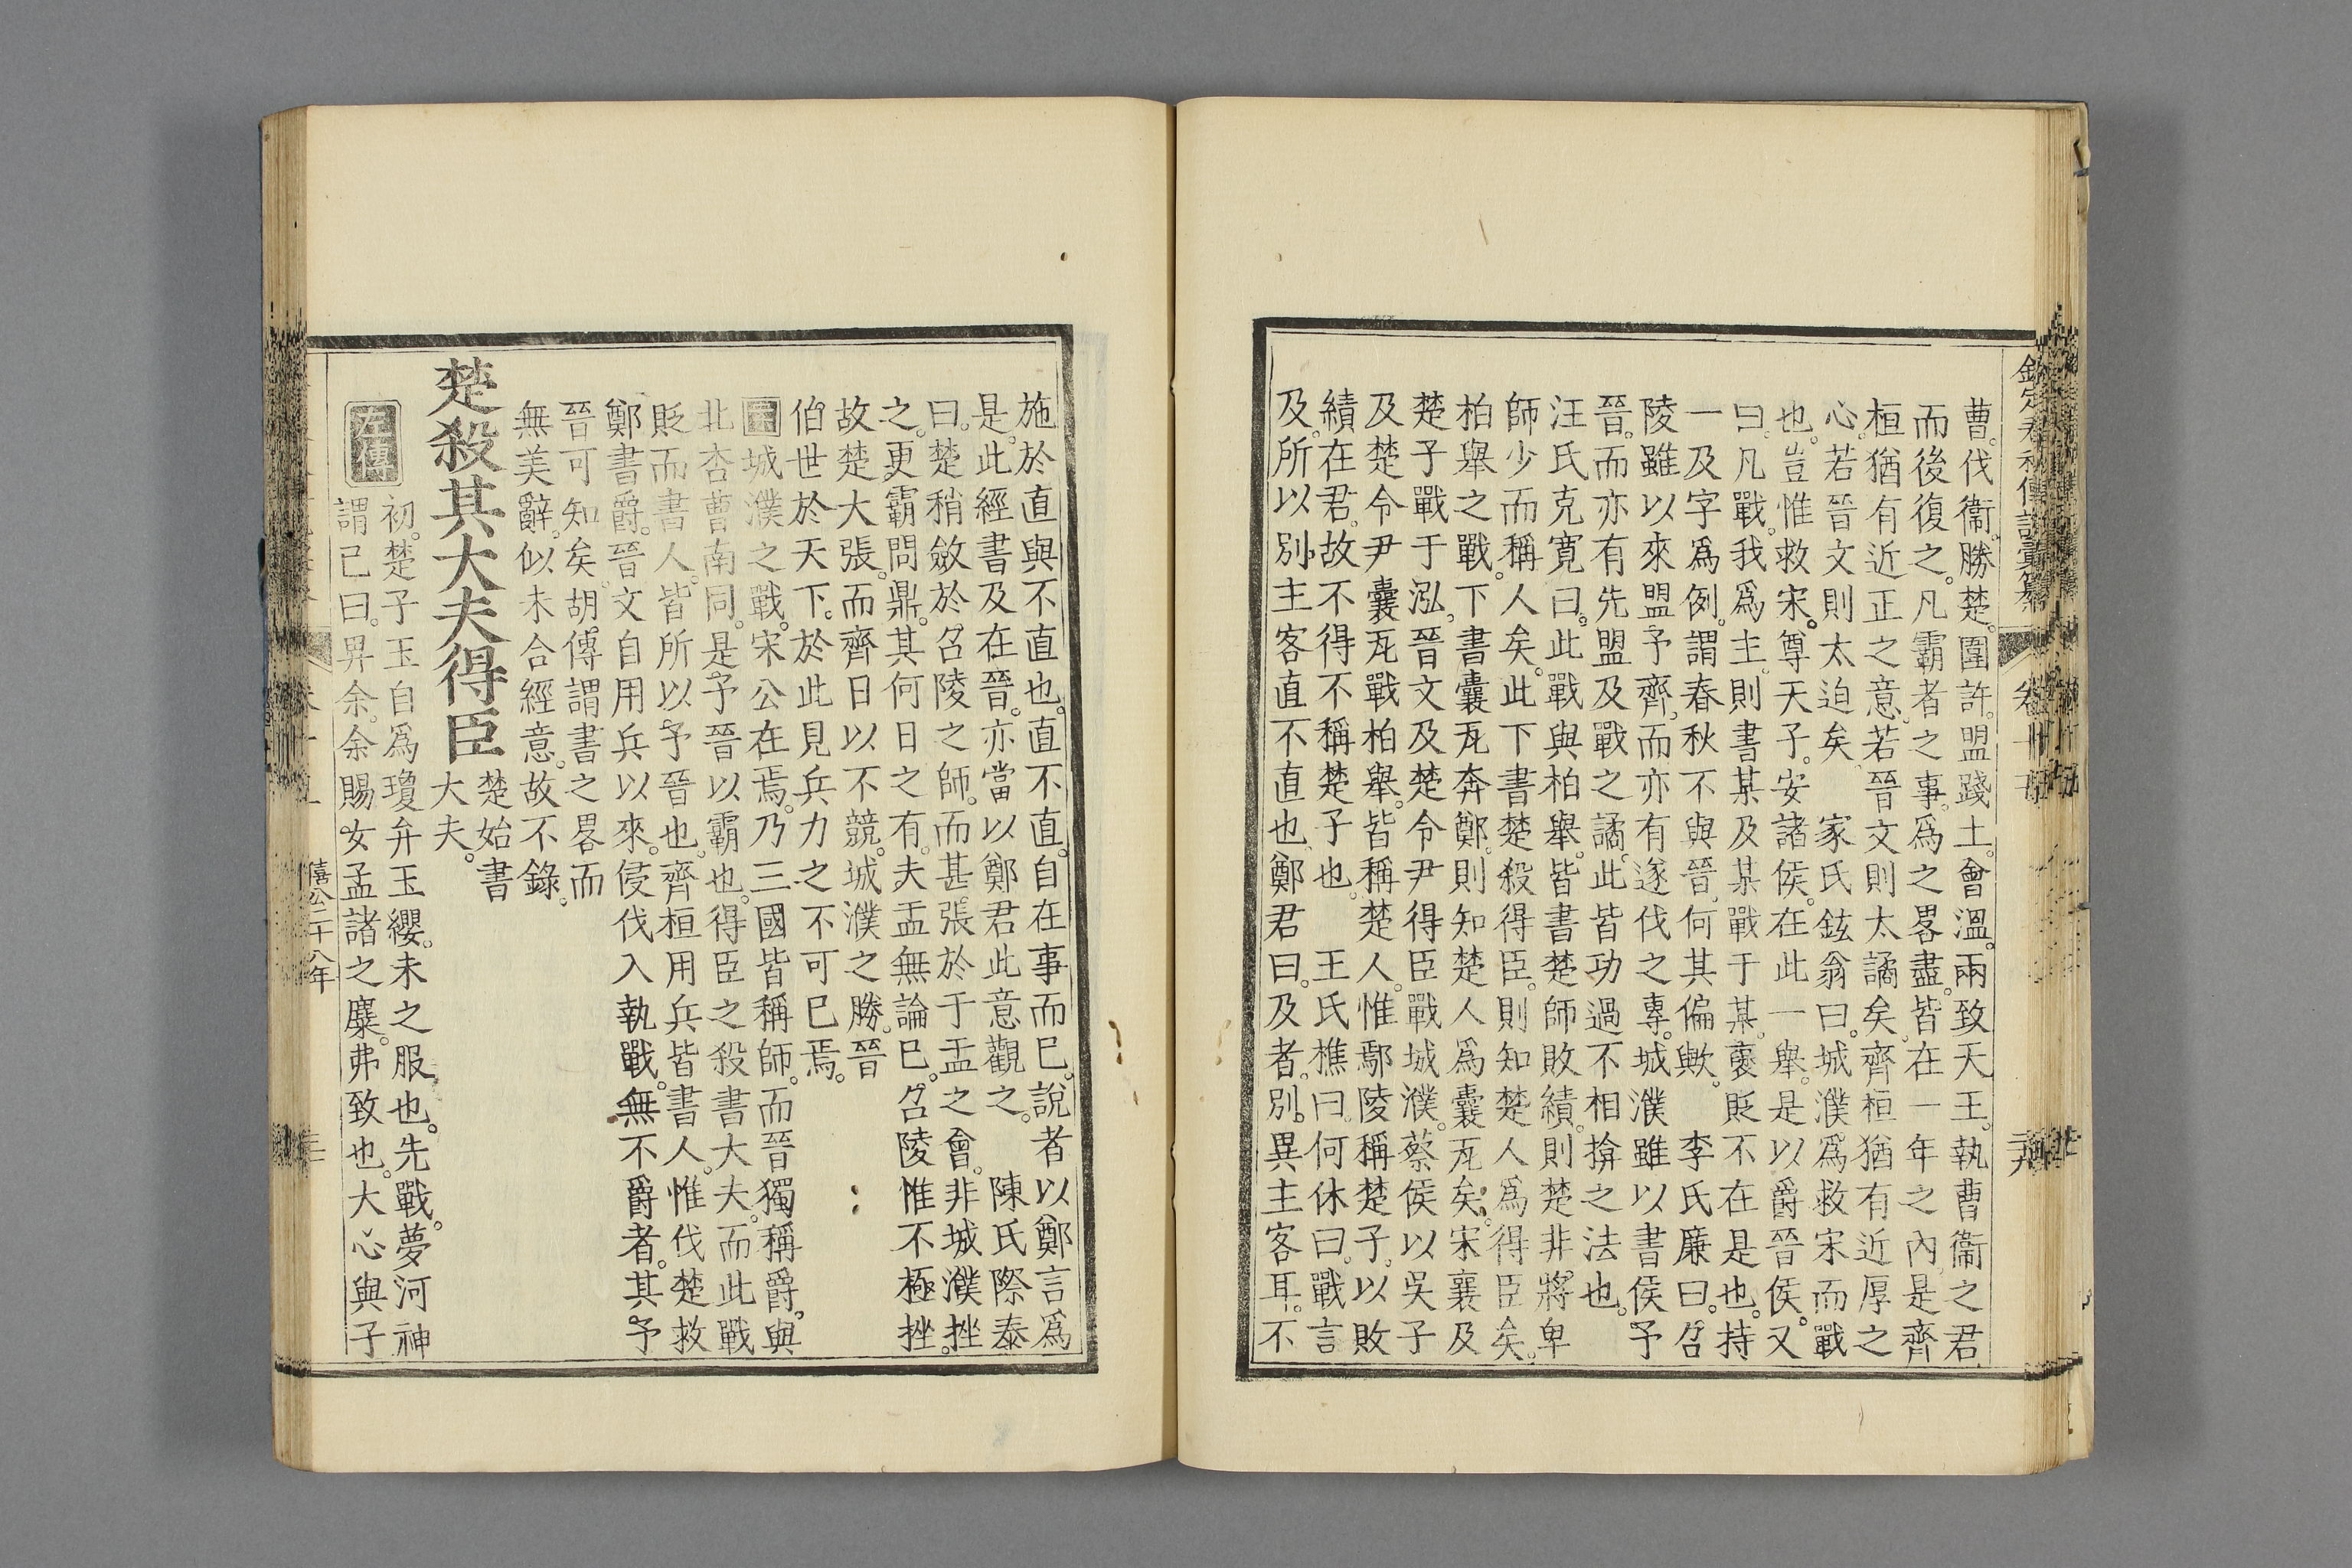 欽定春秋傳說彙纂 卷十五
曹。伐衞。勝楚。圍許。盟踐土。會溫。兩致天王。執曹衞之君
而後復之。凡霸者之事。爲之畧盡。皆在一年之內。是齊
桓猶有近正之意。若晉文則太譎矣。齊桓猶有近厚之
心。若晉文則太迫矣。 家氏鉉翁曰。城濮爲救宋而戰
也。豈惟救宋。尊天子。安諸侯。在此一舉。是以爵晉侯。又
曰。凡戰。我爲主。則書某及某戰于某。襃貶不在是也。持
一及字爲例。謂春秋不與晉。何其偏歟。 李氏廉曰。召
陵雖以來盟予齊。而亦有遂伐之專。城濮雖以書侯予
晉。而亦有先盟及戰之譎。此皆功過不相揜之法也。
汪氏克寬曰。此戰與柏舉。皆書楚師敗績。則楚非將卑
師少而稱人矣。此下書楚殺得臣。則知楚人爲得臣矣。
柏舉之戰。下書囊瓦奔鄭。則知楚人爲囊瓦矣。宋襄及
楚子戰于泓。晉文及楚令尹得臣戰城濮。蔡侯以吳子
及楚令尹囊瓦戰柏舉。皆稱楚人。惟鄢陵稱楚子。以敗
績在君。故不得不稱楚子也。 王氏樵曰。何休曰。戰言
及。所以別主客直不直也。鄭君曰。及者。別異主客耳。不
施於直與不直也。直不直。自在事而已。說者以鄭言爲
是。此經書及在晉。亦當以鄭君此意觀之。 陳氏際泰
曰。楚稍斂於召陵之師。而甚張於于盂之會。非城濮挫
之。更霸問鼎。其何日之有。夫盂無論已。召陵惟不極挫。
故楚大張。而齊日以不競。城濮之勝。晉
伯世於天下。於此見兵力之不可已焉。
城濮之戰。宋公在焉。乃三國皆稱師。而晉獨稱爵。與
北杏曹南同。是予晉以霸也。得臣之殺書大夫。而此戰
貶而書人。皆所以予晉也。齊桓用兵皆書人。惟伐楚救
鄭書爵。晉文自用兵以來。侵伐入執戰。無不爵者。其予
晉可知矣。胡傳謂書之畧而
無美辭。似未合經意。故不錄。
楚殺其大夫得臣
楚始書
大夫。
左傳
初。楚子玉自爲瓊弁玉纓。未之服也。先戰。夢河神
謂已曰。畀余。余賜女孟諸之麋。弗致也。大心與子
僖公二十八年